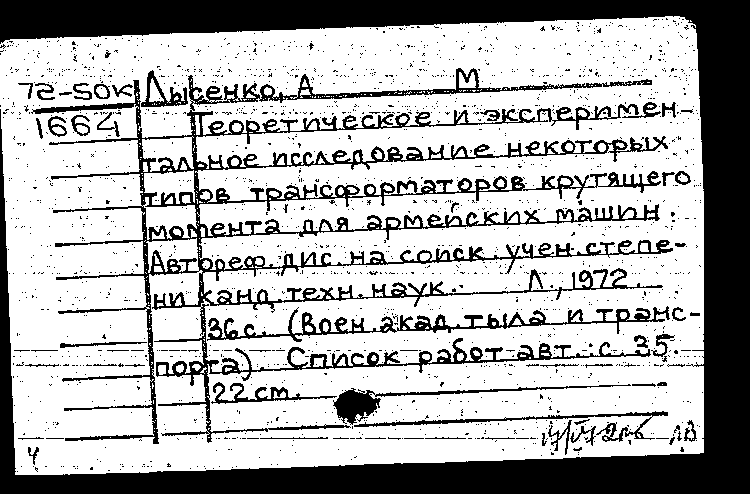 72-50к Лысенко, А М
1664 Теоретическое и эксперимен-
тальное исследование некоторых
типов трансформаторов крутящего
момента для армейских машин.
Автореф. дис. на соиск. учен. степе-
ни канд. техн. наук. Л., 1972.
36 с. (Воен. акад. тыла и транс-
порта). Список работ авт.: с. 35.
22 см.
ЛВ
Ч